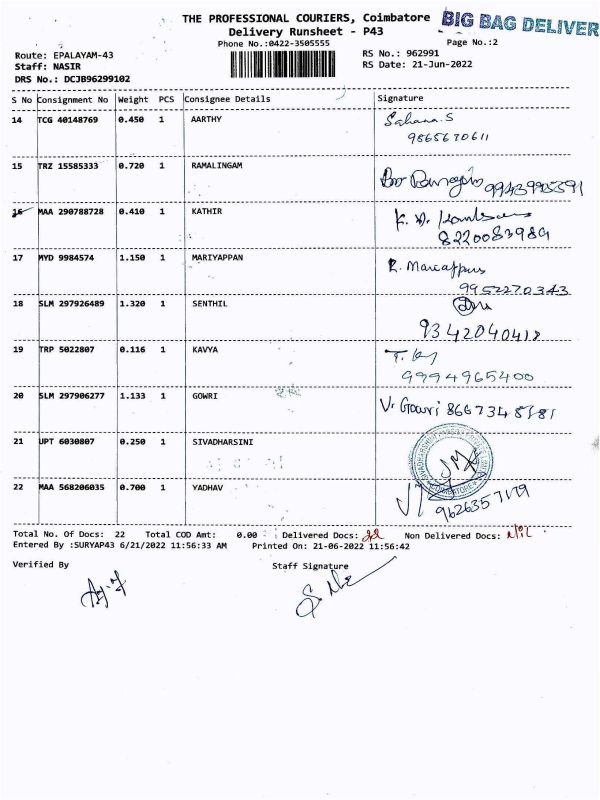 THE PROFESSIONAL COURIERS, Coimbatore
BIG BAG DELIVER
Delivery Runsheet - P43
Phone No.:0422-3505555
Page No.:2
Route: EPALAYAM-43
RS No.: 962991
Staff: NASIR
RS Date: 21-Jun-2022
DRS No.: DCJB96299102
S No Consignment No Weight PCS Consignee Details Signature
14 TCG 40148769 0.450 1 AARTHY Sahana.S
9865670611
15 TRZ 15585333 0.720 1 RAMALINGAM
16 MAA 290788728 0.410 1 KATHIR
8220083989
17 MYD 9984574 1.150 1 MARIYAPPAN
9952270343
18 SLM 297926489 1.320 1 SENTHIL
9342040418
19 TRP 5022807 0.116 1 KAVYA
9994965400
20 SLM 297906277 1.133 1 GOWRI V. Gowri
21 UPT 6030807 0.250 1 SIVADHARSINI
22 MAA 568206035 0.700 1 YADHAV
Total No. Of Docs: 22 Total COD Amt: 0.00 Delivered Docs: 22 Non Delivered Docs: Nil
Entered By :SURYAP43 6/21/2022 11:56:33 AM Printed On: 21-06-2022 11:56:42
Verified By Staff Signature